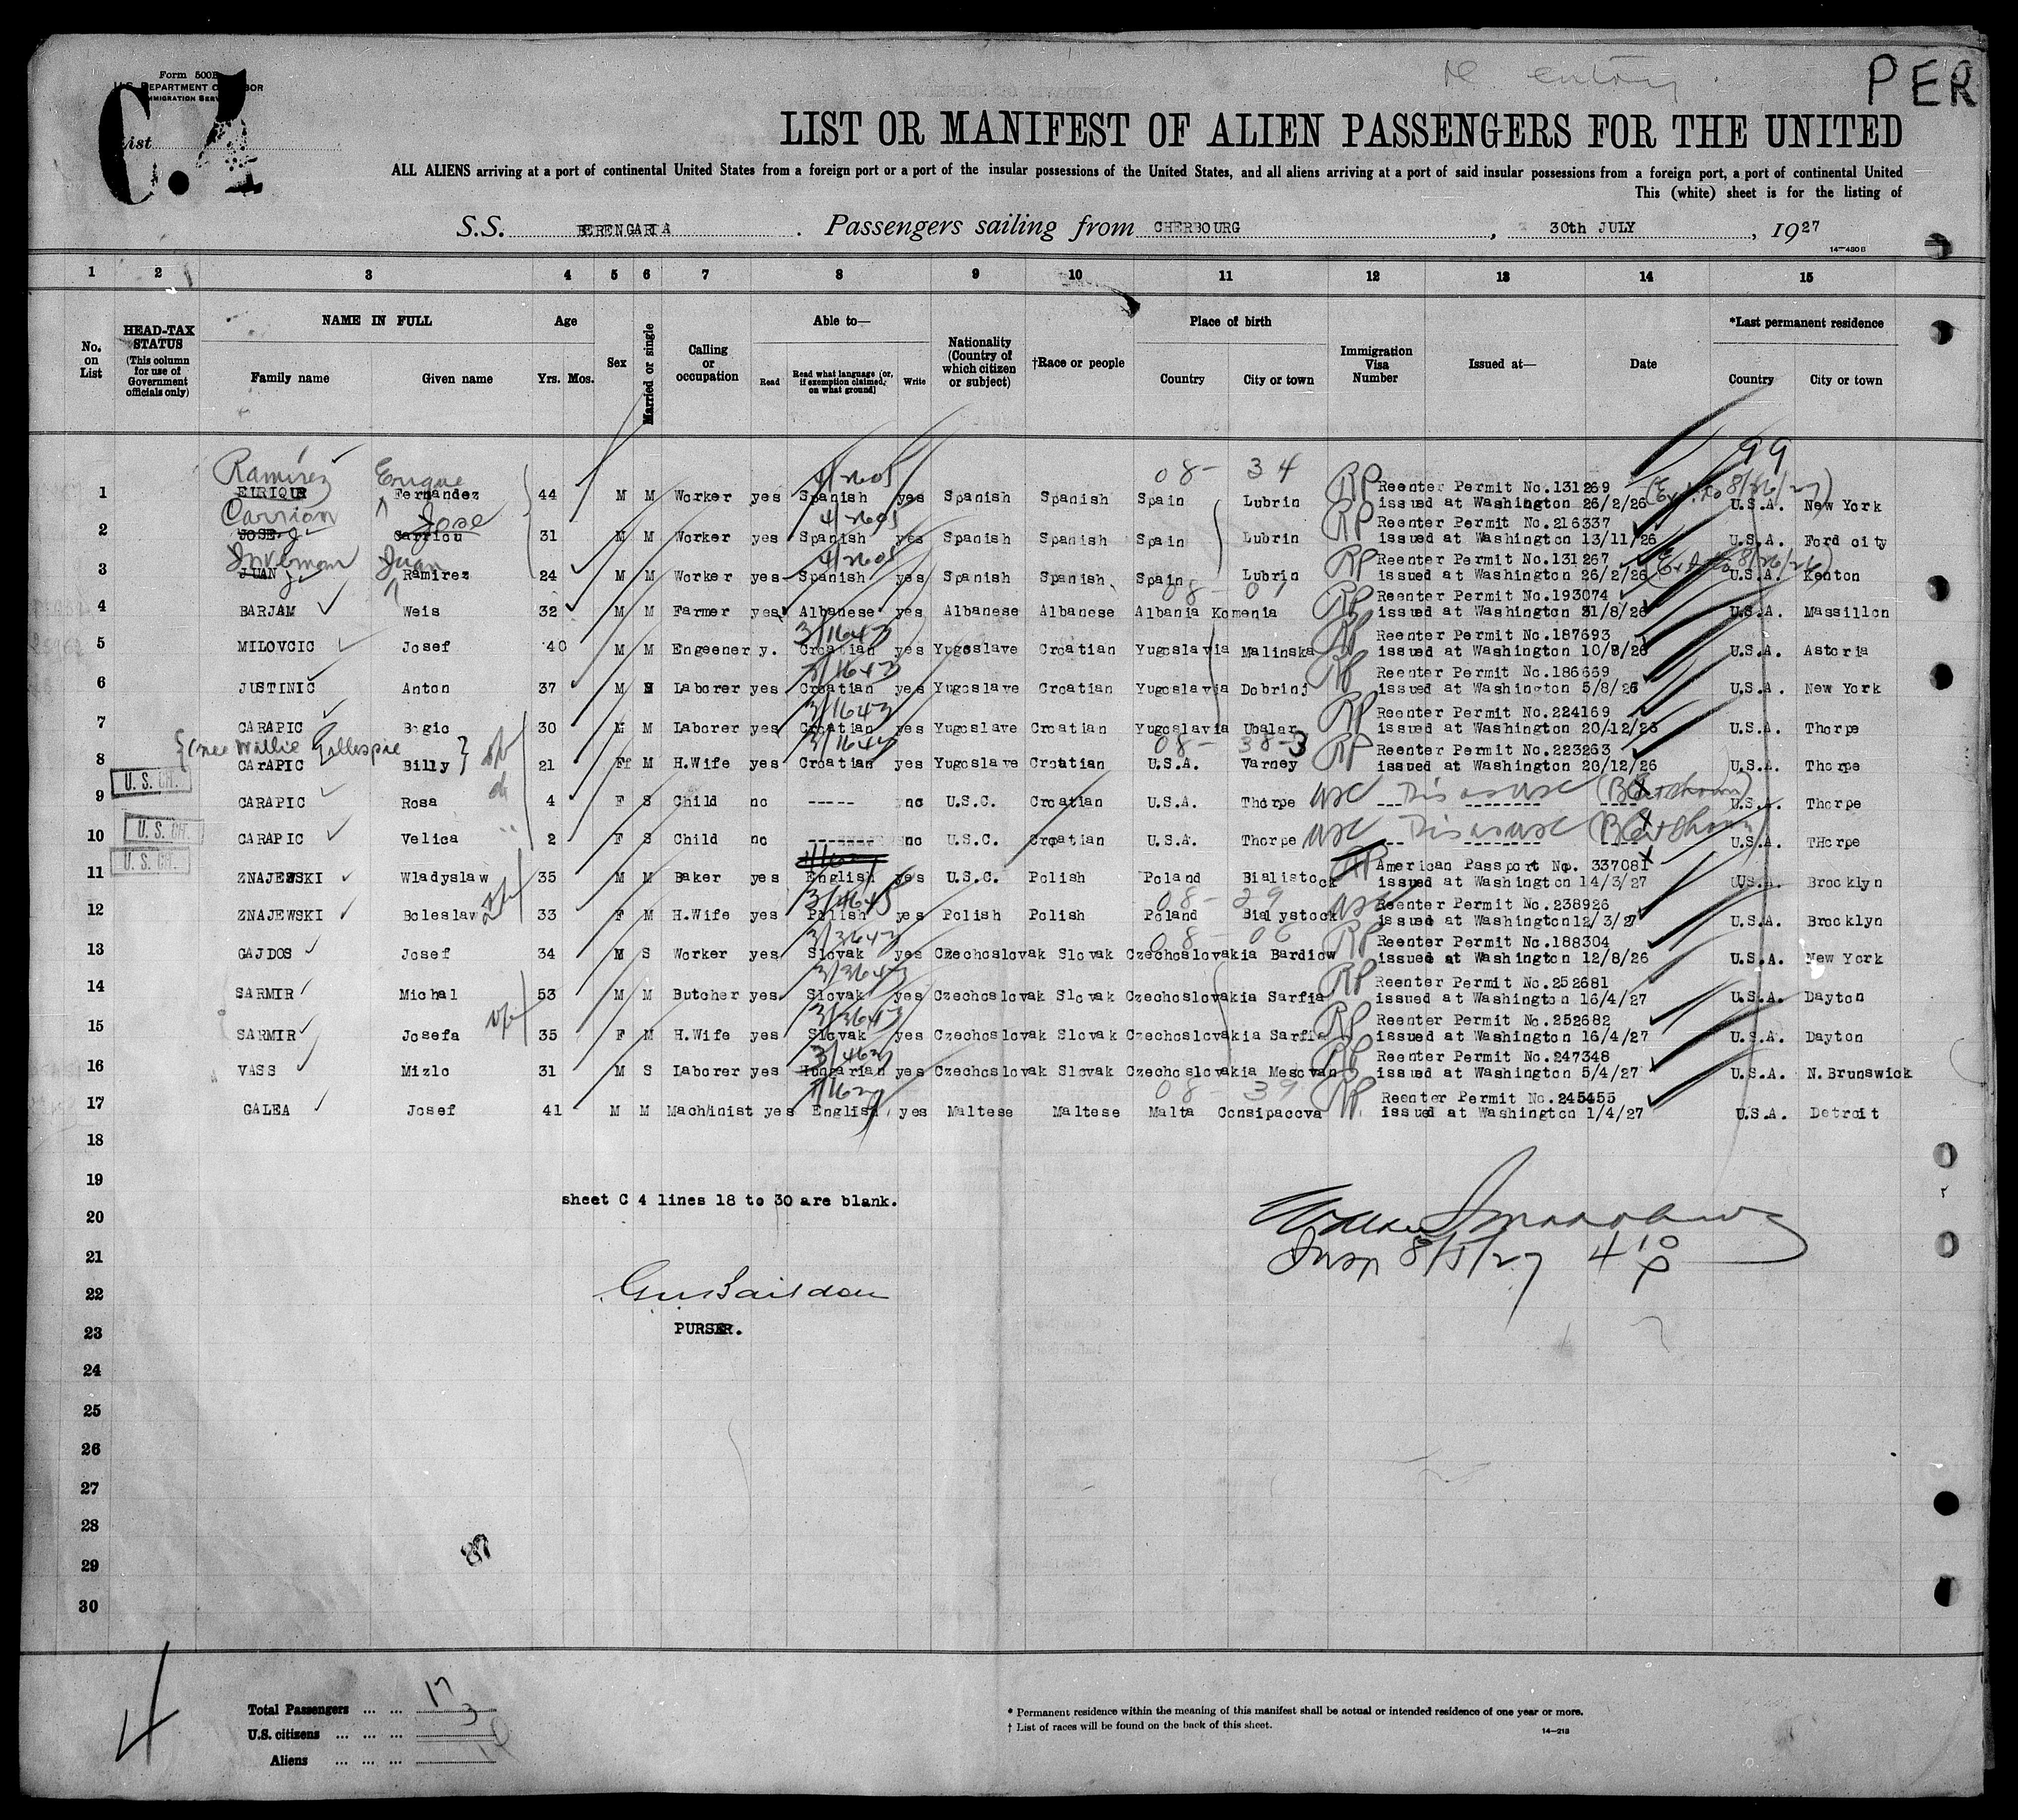 Form 500B
U.S. DEPARTMENT OF LABOR
IMMIGRATION SERVICE
List
C.4
PER
LIST OR MANIFEST OF ALIEN PASSENGERS FOR THE UNITED
ALL ALIENS arriving at a port of continental United States from a foreign port or a port of the insular possessions of the United States, and all aliens arriving at a port of said insular possessions from a foreign port, a port of continental United
This (white) sheet is for the listing of
S.S. BERENGARIA . Passengers sailing from CHERBOURG , 30th JULY , 1927
14—480 B
1 2 3 4 5 6 7 8 9 10 11 12 13 14 15
No. on List
HEAD-TAX STATUS (This column for use of Government officials only)
NAME IN FULL Family name Given name
Age Yrs. Mos.
Sex
Married or single
Calling or occupation
Able to— Read Read what language (or, if exemption claimed, on what ground) Write
Nationality (Country of which citizen or subject)
†Race or people
Place of birth Country City or town
Immigration Visa Number
Issued at—
Date
*Last permanent residence Country City or town
99
Ramirez Enrique 08- 34
RP Reenter Permit No.131269
1 EIRIQUR Fernandez 44 M M Worker yes Spanish yes Spanish Spanish Spain Lubrin issued at Washington 26/2/26 U.S.A. New York
Carrion Jose
RP Reenter Permit No.216337
2 JOSE Carriou 31 M M Worker yes Spanish yes Spanish Spanish Spain Lubrin issued at Washington 13/11/26 U.S.A. Ford city
Juan
RP Reenter Permit No.131267
3 JUAN Ramirez 24 M M Worker yes Spanish yes Spanish Spanish Spain Lubrin issued at Washington 26/2/26 U.S.A. Kenton
08- 01
RP Reenter Permit No.193074
4 BARJAM Weis 32 M M Farmer yes Albanese yes Albanese Albanese Albania Komenia issued at Washington 31/8/26 U.S.A. Massillon
RP Reenter Permit No.187693
5 MILOVCIC Josef 40 M M Engeener y. Croatian yes Yugoslave Croatian Yugoslavia Malinska issued at Washington 10/8/26 U.S.A. Astoria
RP Reenter Permit No.186669
6 JUSTINIC Anton 37 M Laborer yes Croatian yes Yugoslave Croatian Yugoslavia Dobrinj issued at Washington 5/8/26 U.S.A. New York
RP Reenter Permit No.224169
7 CARAPIC Bogic 30 M M Laborer yes Croatian yes Yugoslave Croatian Yugoslavia Ubalar issued at Washington 20/12/26 U.S.A. Thorpe
(nee Willie Gillespie 08- 38-3
RP Reenter Permit No.223263
8 CArAPIC Billy 21 F M H.Wife yes Croatian yes Yugoslave Croatian U.S.A. Varney issued at Washington 20/12/26 U.S.A. Thorpe
U. S. CIT.
9 CARAPIC Rosa 4 F S Child no ----- no U.S.C. Croatian U.S.A. Thorpe USC --- -------- ---- U.S.A. Thorpe
U. S. CIT.
10 CARAPIC Velica 2 F S Child no ------- no U.S.C. Croatian U.S.A. Thorpe USC --- -------- ---- U.S.A. THorpe
U. S. CIT.
American Passport No. 337081
11 ZNAJEWSKI Wladyslaw 35 M M Baker yes English yes U.S.C. Polish Poland Bialistock issued at Washington 14/3/27 USA. Brooklyn
08- 29
USC Reenter Permit No.238926
12 ZNAJEWSKI Boleslaw 33 F M H.Wife yes Polish yes Polish Polish Poland Bialystock issued at Washington12/3/27 U.S.A. Brooklyn
08- 06
RP Reenter Permit No.188304
13 GAJDOS Josef 34 M S Worker yes Slovak yes Czechoslovak Slovak Czechoslovakia Bardiow issued at Washington 12/8/26 U.S.A. New York
RP Reenter Permit No.252681
14 SARMIR Michal 53 M M Butcher yes Slovak yes Czechoslovak Slovak Czechoslovakia Sarfia issued at Washington 16/4/27 U.S.A. Dayton
RP Reenter Permit No.252682
15 SARMIR Josefa 35 F M H.Wife yes Slovak yes Czechoslovak Slovak Czechoslovakia Sarfia issued at Washington 16/4/27 U.S.A. Dayton
RP Reenter Permit No.247348
16 VASS Mizlo 31 M S Laborer yes Hungarian yes Czechoslovak Slovak Czechoslovakia Mesovan issued at Washington 5/4/27 U.S.A. N.Brunswick
08- 39
RP Reenter Permit No.245455
17 GALEA Josef 41 M M Machinist yes English yes Maltese Maltese Malta Consipacova issued at Washington 1/4/27 U.S.A. Detroit
18
19
sheet C 4 lines 18 to 30 are blank.
20
21
Insp 8/5/27
22
23
PURSER.
24
25
26
27
28
87
29
30
4
Total Passengers ... ... 17
U.S. citizens ... ... ... 3
Aliens ... ... ... 14
* Permanent residence within the meaning of this manifest shall be actual or intended residence of one year or more.
† List of races will be found on the back of this sheet.
14—213